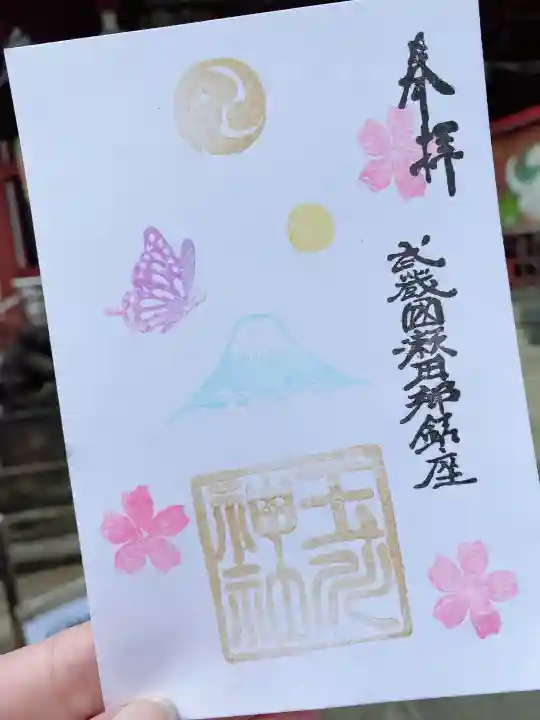 奉拝
武蔵國瀬田郷鎮座
玉川
神社